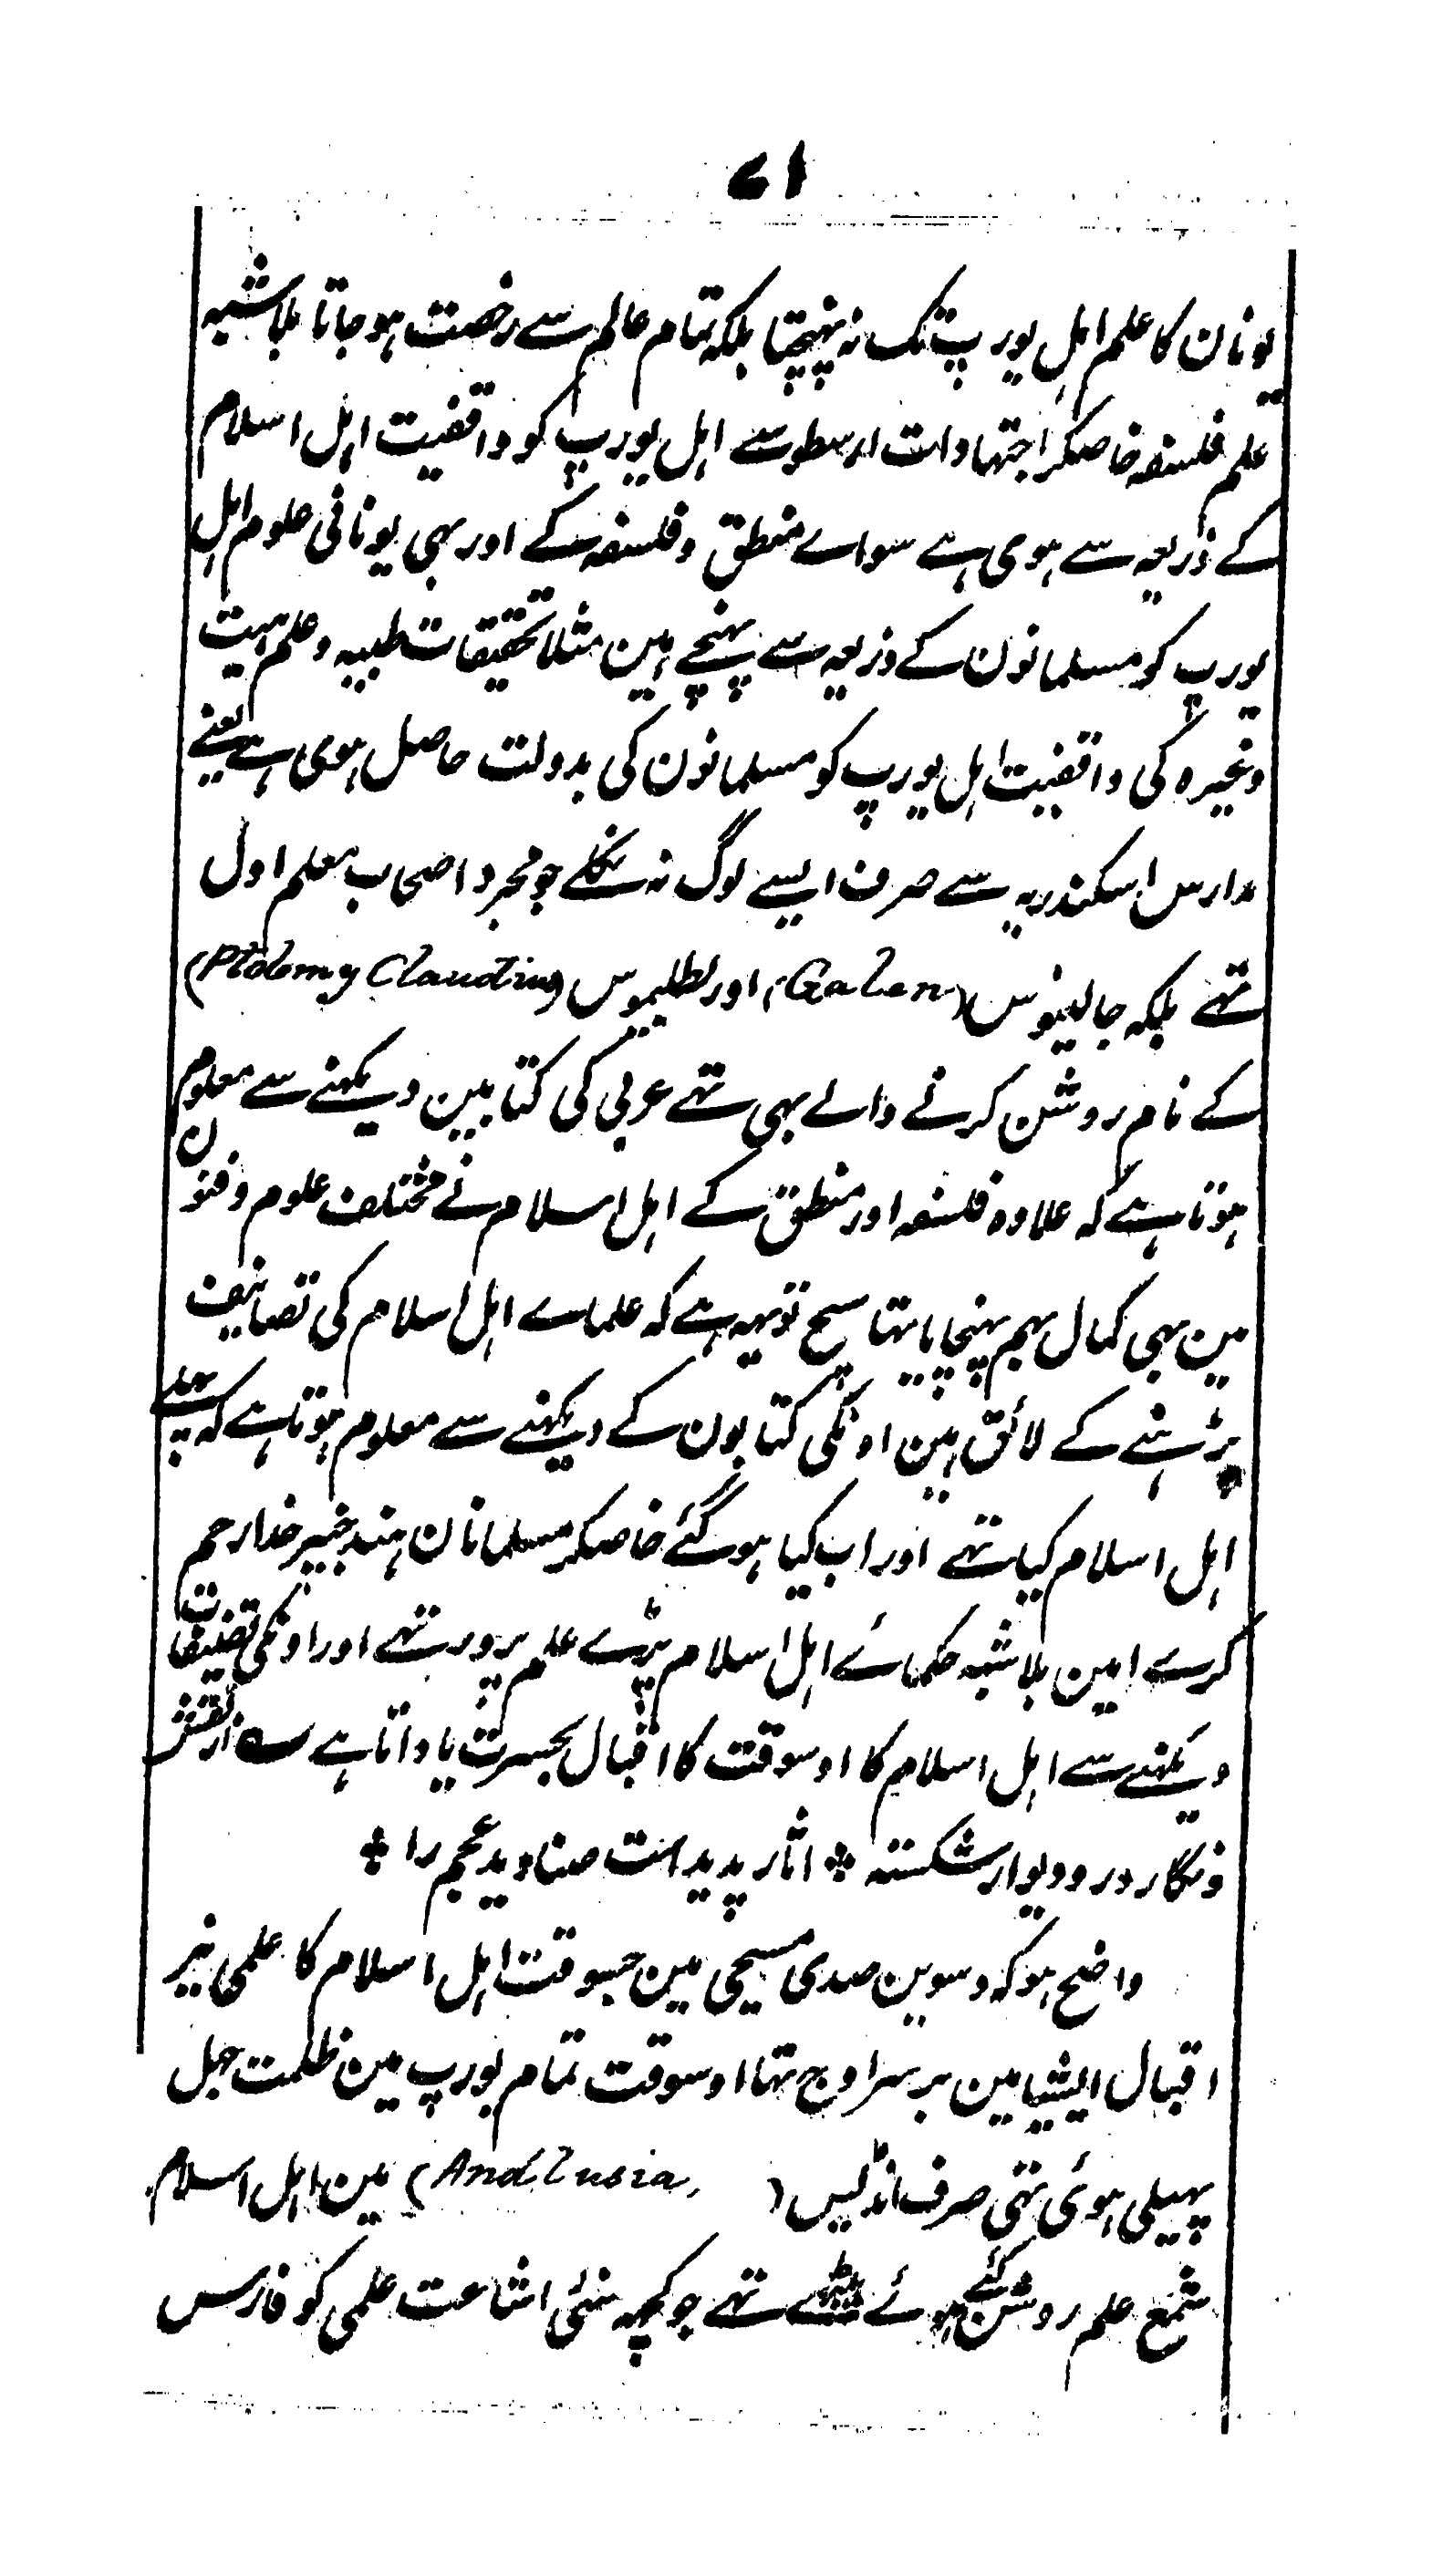 ۷۱
یونان کا علم اہل یورپ تک نہ پہنچتا بلکہ تمام عالم سے رخصت ہو جاتا بلا شبہ
علم فلسفہ خاصکر اجتہادات ارسطو سے اہل یورپ کو واقفیت اہل اسلام
کے ذریعہ سے ہوی ہے سواے منطق و فلسفہ کے اور بہی یونانی علوم اہل
یورپ کو مسلمانون کے ذریعہ سے پہنچے ہین مثلا تحقیقات طبیہ و علم ہیت
وغیرہ کی واقفیت اہل یورپ کو مسلمانون کی بدولت حاصل ہوی ہے یعنے
مدارس اسکندریہ سے صرف ایسے لوگ نہ نکلے جو مجرد اصحاب معلم اول
تہے بلکہ جالینوس (Galen) اور بطلیموس (Ptolemy Claudius)
کے نام روشن کرنے والے بہی تہے عربی کی کتابین دیکہنے سے معلوم
ہوتا ہے کہ علاوہ فلسفہ اور منطق کے اہل اسلام نے مختلف علوم و فنون
مین بہی کمال بہم پہنچایا تہا سچ تو یہہ ہے کہ علماے اہل اسلام کی تصانیف
پڑہنے کے لائق ہین اونکی کتابون کے دیکہنے سے معلوم ہوتا ہے کہ پہلے
اہل اسلام کیا تہے اور اب کیا ہو گئے خاصکر مسلمانان ہند خیر خدا رحم
کرے امین بلا شبہ حکمائے اہل اسلام بڑے علم پرور تہے اور اونکی تصنیفات
دیکہنے سے اہل اسلام کا اوسوقت کا اقبال بحسرت یاد اتا ہے ؎ از نقش
و نگار در و دیوار شکستہ * اثار پدید است صنادید عجم را *
واضح ہو کہ دسوین صدی مسیحی مین جسوقت اہل اسلام کا علمی نیر
اقبال ایشیا مین برسر اوج تہا اوسوقت تمام یورپ مین ظلمت جہل
پہیلی ہوئی تہی صرف اندلس (Andlusia) مین اہل اسلام
شمع علم روشن کئے ہوئے بیٹہے تہے جو کچہہ نئی اشاعت علمی کو فارس